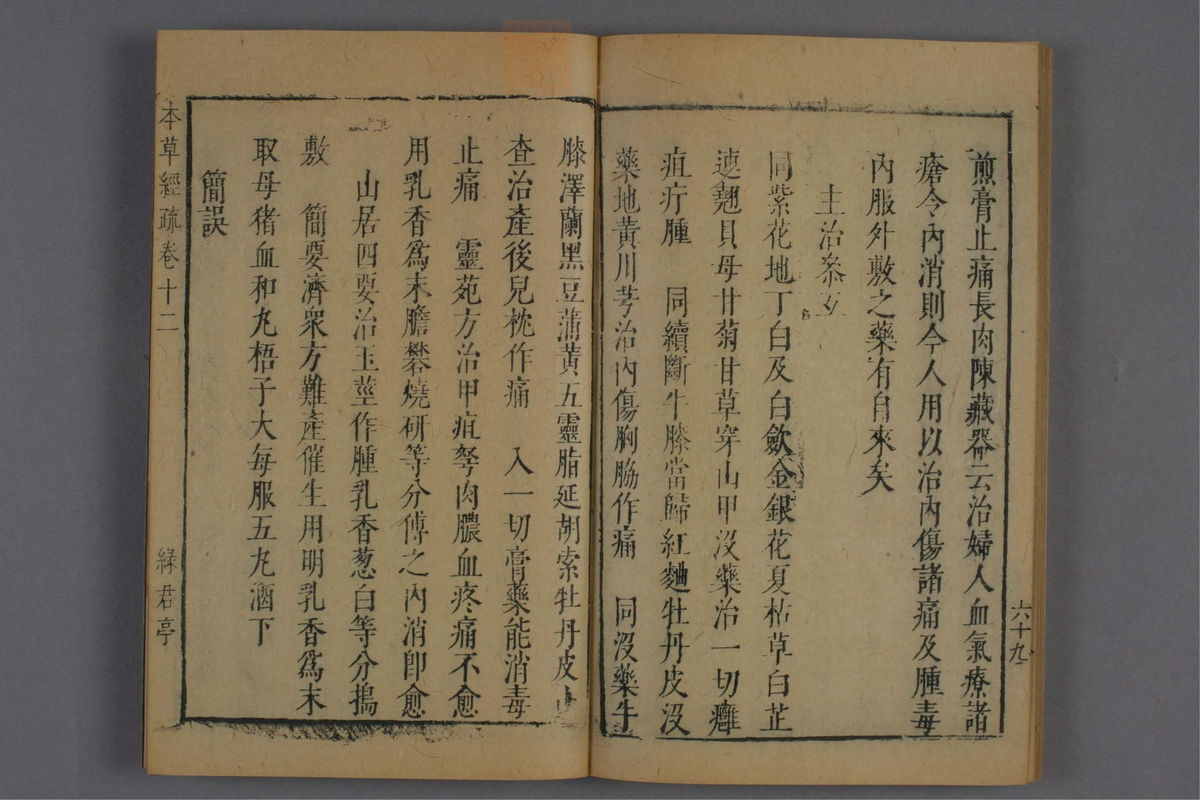 煎膏止痛長肉陳藏器云治婦人血氣療諸
瘡令內消則今人用以治內傷諸痛及腫毒
內服外敷之藥有自來矣
主治參互
同紫花地丁白及白歛金銀花夏枯草白芷
連翹貝母甘菊甘草穿山甲沒藥治一切癰
疽疔腫 同續斷牛膝當歸紅麯牡丹皮沒
藥地黃川芎治內傷胸脇作痛 同沒藥牛
六十九
膝澤蘭黑豆蒲黃五靈脂延胡索牡丹皮山
查治產後兒枕作痛 入一切膏藥能消毒
止痛 靈苑方治甲疽弩肉膿血疼痛不愈
用乳香爲末膽礬燒研等分傅之內消卽愈
山居四要治玉莖作腫乳香葱白等分搗
敷 簡要濟衆方難產催生用明乳香爲末
取母猪血和丸梧子大每服五丸酒下
簡誤
本草經疏卷十二
綠君亭